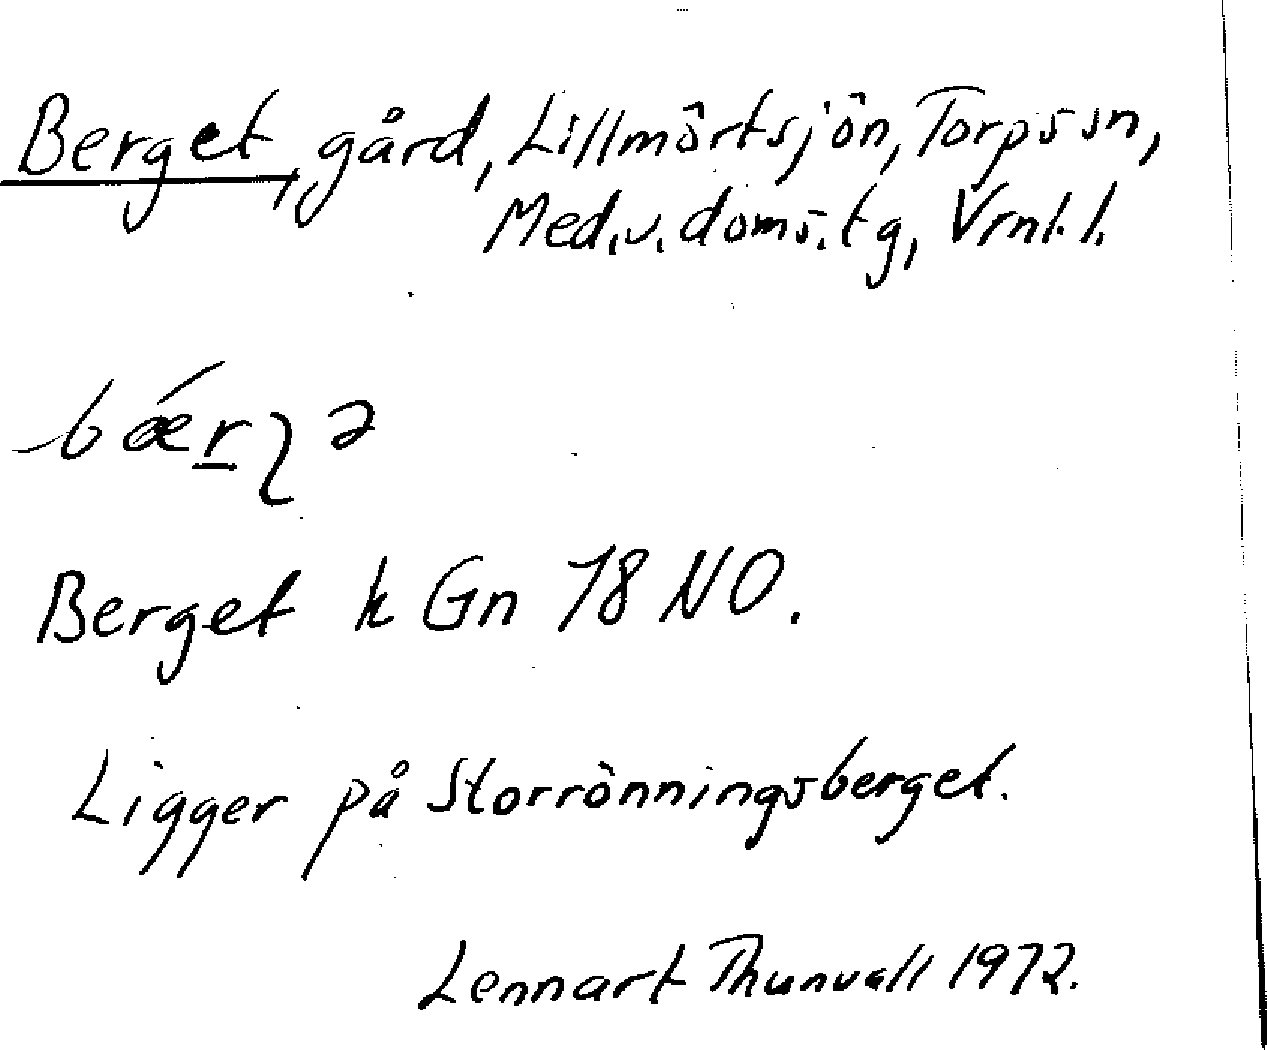 Berget, gård, Lillmörtsjön, Torps sn,
Med.v.doms.tg, Vrnl.l.
Berget k Gn 78 NO.
Ligger på Storrönningsberget.
Lennart Thunvall 1972.